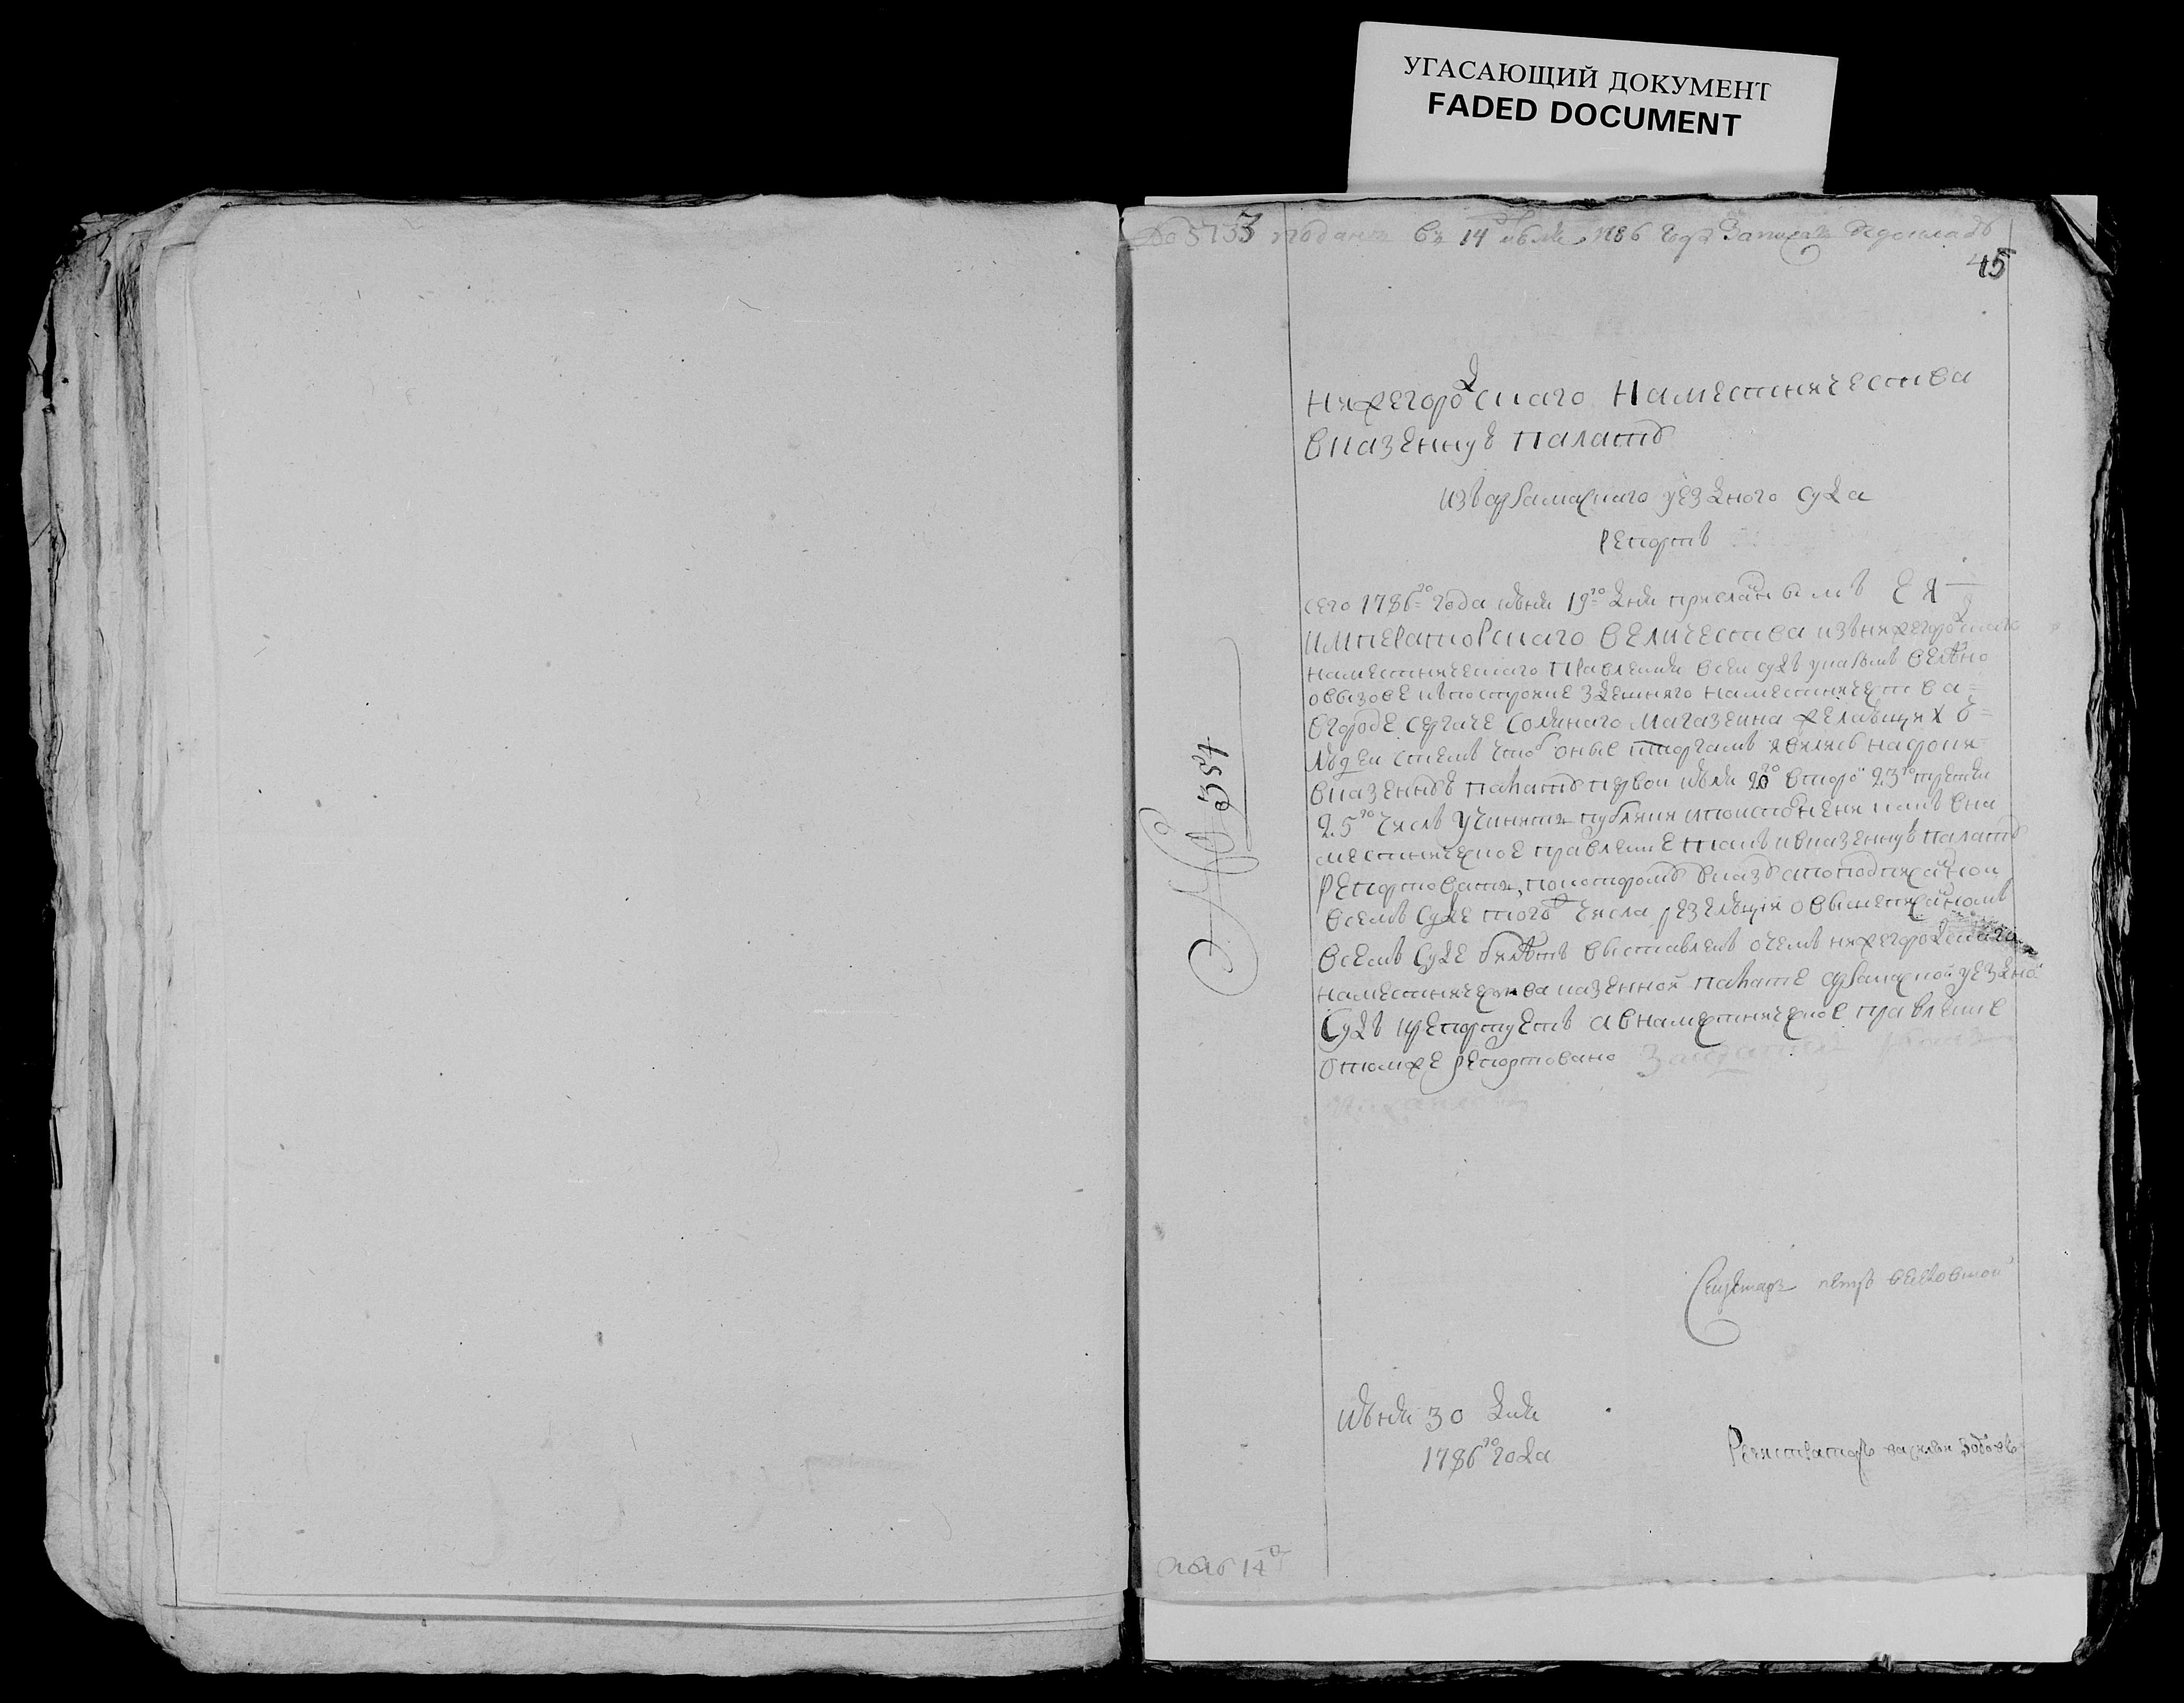 УГАСАЮЩИЙ ДОКУМЕНТ
FADED DOCUMENT
5733 подан въ 14 июля 1786 года записать и доложить
45
нижегородскаго наместничества
вказенную палату
изъ арзамаскаго уезднаго суда
репортъ
сего 1786го года июня 19го дня присланнымъ ЕЯ
императорскаго величества изъ нижегородскаго
наместническаго правления всеи судъ указомъ велено
овызове кпостроике здешняго наместничества
вгороде сергаче солянаго магазеина желающихъ
людеи стемъ чтоб оные кторгамъ явились насроки
вказенную палату первои июля 20 второй 23го третии
25го числъ учинить публики ипоисполнении какъ вна
местническое правление такъ ивказенную палату
репортовать, покоторому указу апоподписанной
всемъ суде того числа резолюции овышеписанномъ
всемъ суде билетъ выставленъ очемъ нижегородскаго
наместничества казенной палате арзамаской уездной
судъ ирепортуетъ авнаместническое правление
отомже репортовано
№ 354
Секретарь петръ
июня 30 дня
1786го года
Регистраторъ василеи зотовъ
июля 14